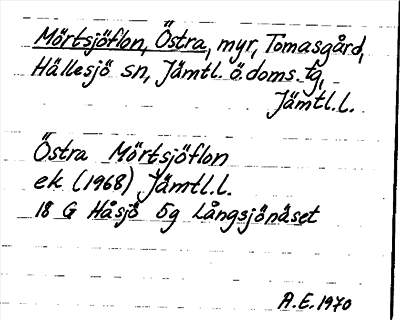 Mörtsjöflon, Östra, myr, Tomasgård,
Hällesjö sn, Jämtl. ö. doms. tg,
Jämtl.l.
Östra Mörtsjöflon
ek (1968) Jämtl.l.
18 G Håsjö 5g Långsjönäset
A.E. 1970